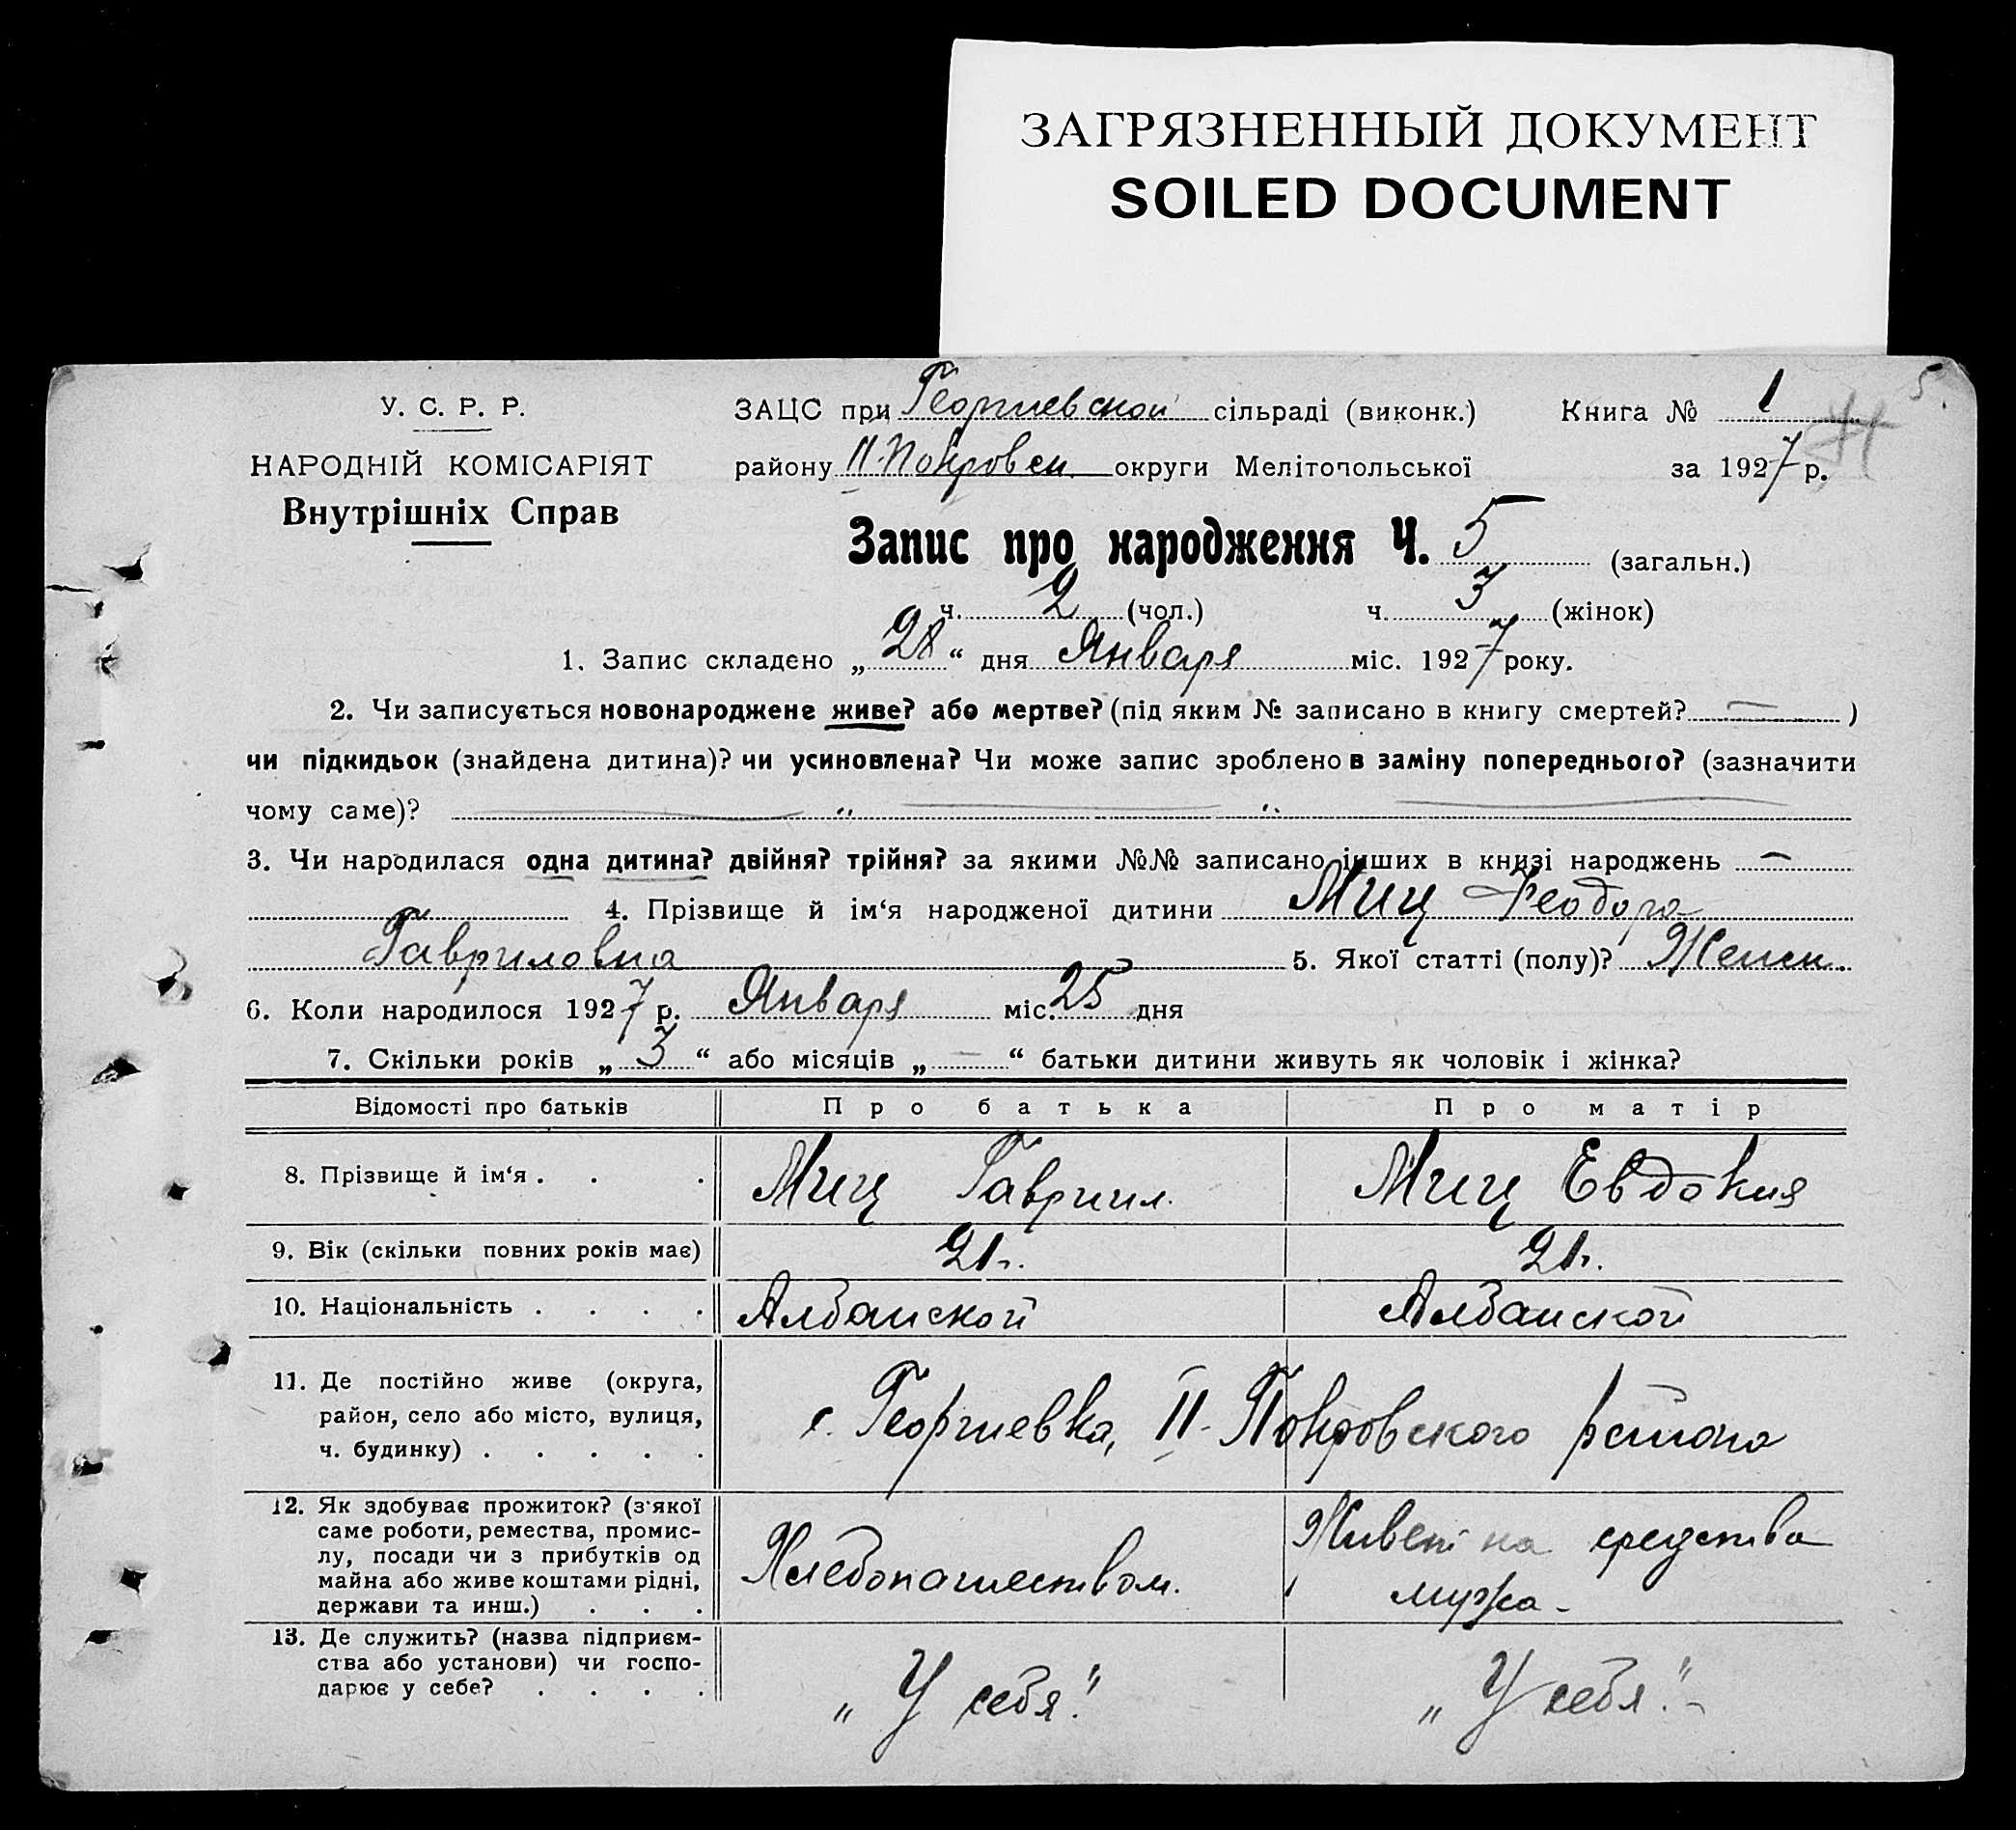 ЗАГРЯЗНЕННЫЙ ДОКУМЕНТ
SOILED DOCUMENT
5.
У. С. Р. Р.
НАРОДНІЙ КОМІСАРІЯТ
Внутрішніх Справ
ЗАЦС при Георгиевской сільраді (виконк.) Книга № 1
району II-Покровск. округи Мелітопольської за 1927 р.
Запис про народження Ч. 5 (загальн.)
ч. 2 (чол.) ч. 3 (жінок)
1. Запис складено „28“ дня Января міс. 1927 року.
2. Чи записується новонароджене живе? або мертве? (під яким № записано в книгу смертей? — )
чи підкидьок (знайдена дитина)? чи усиновлена? Чи може запис зроблено в заміну попереднього? (зазначити
чому саме)? — „ — „ —
3. Чи народилася одна дитина? двійня? трійня? за якими №№ записано інших в книзі народжень —
4. Прізвище й ім‘я народженої дитини Миц Феодора
Гавриловна 5. Якої статті (полу)? Женск.
6. Коли народилося 1927 р. Января міс. 25 дня
7. Скільки років „3“ або місяців „—“ батьки дитини живуть як чоловік і жінка?
Відомості про батьків Про батька Про матір
8. Прізвище й ім‘я . . . Миц Гавриил. Миц Евдокия
9. Вік (скільки повних років має) 21 г. 21 г.
10. Національність . . . . Албанской Албанской
11. Де постійно живе (округа,
район, село або місто, вулиця,
ч. будинку) . . . . .
с. Георгиевка, II-Покровского района
12. Як здобуває прожиток? (з‘якої
саме роботи, ремества, промис-
лу, посади чи з прибутків од
майна або живе коштами рідні,
держави та инш.) . . .
Хлебопашеством.
Живет на средства
мужа-
13. Де служить? (назва підприєм-
ства або установи) чи госпо-
дарює у себе? . . . .
„У себя."
„У себя."-